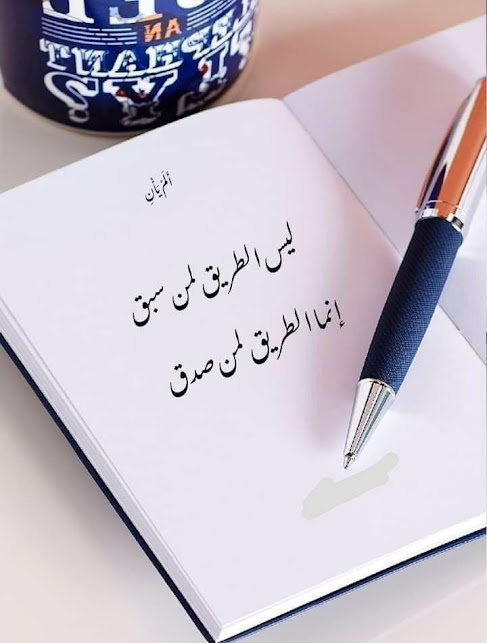 أَلَمْ يَأْنِ
ليس الطريق لمن سبق
إنما الطريق لمن صدق